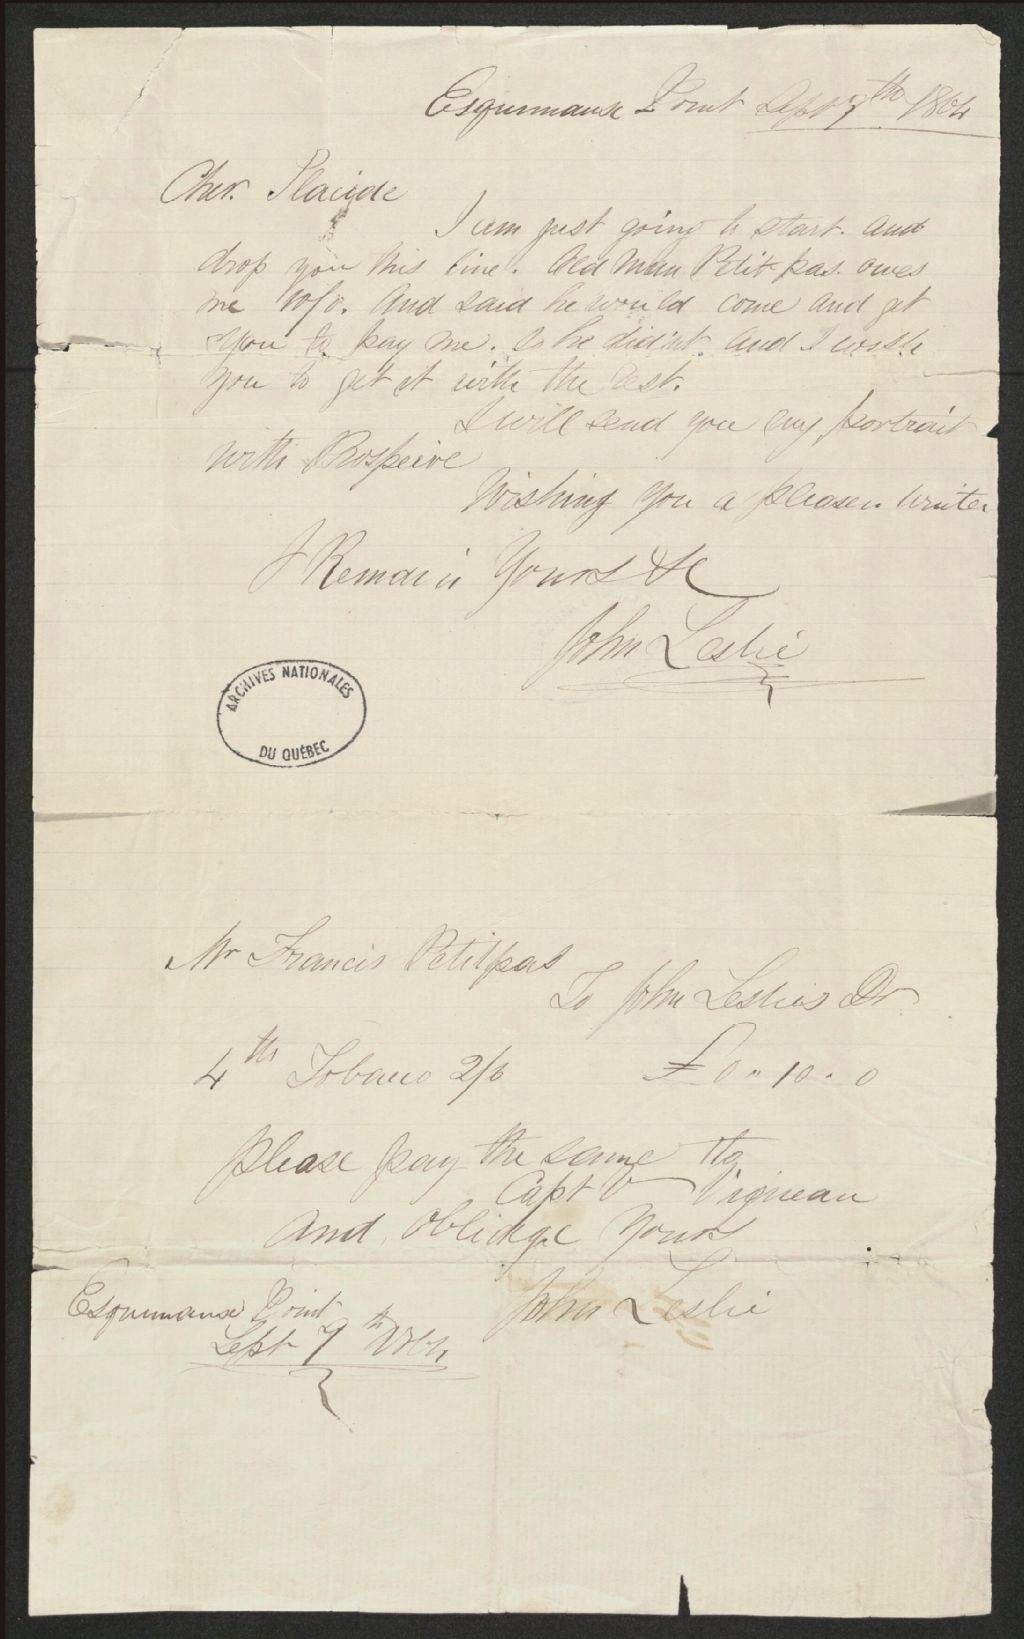 Esquimaux Point Sept 7th 1864
Cher. Placide
I am just going to start. and
drop you this line. Old Man Petit pas. owes
me 10/0. And said he would come and get
you to pay me. he did'nt. and I wish
you to get it with the rest.
I will send you my portrait
with Prospeire
Wishing you a pleasen. winter
I Remain Yours &c
John Leslie
ARCHIVES NATIONALES
DU QUÉBEC
Mr Francis Petitpas
To John Leslies Dr
4 lb Tobacco 2/6 £0 " 10 " 0
please pay the same to
Capt V Vigneau
and Oblidge Yours
John Leslie
Esquimaux Point
Sept 7th 1864